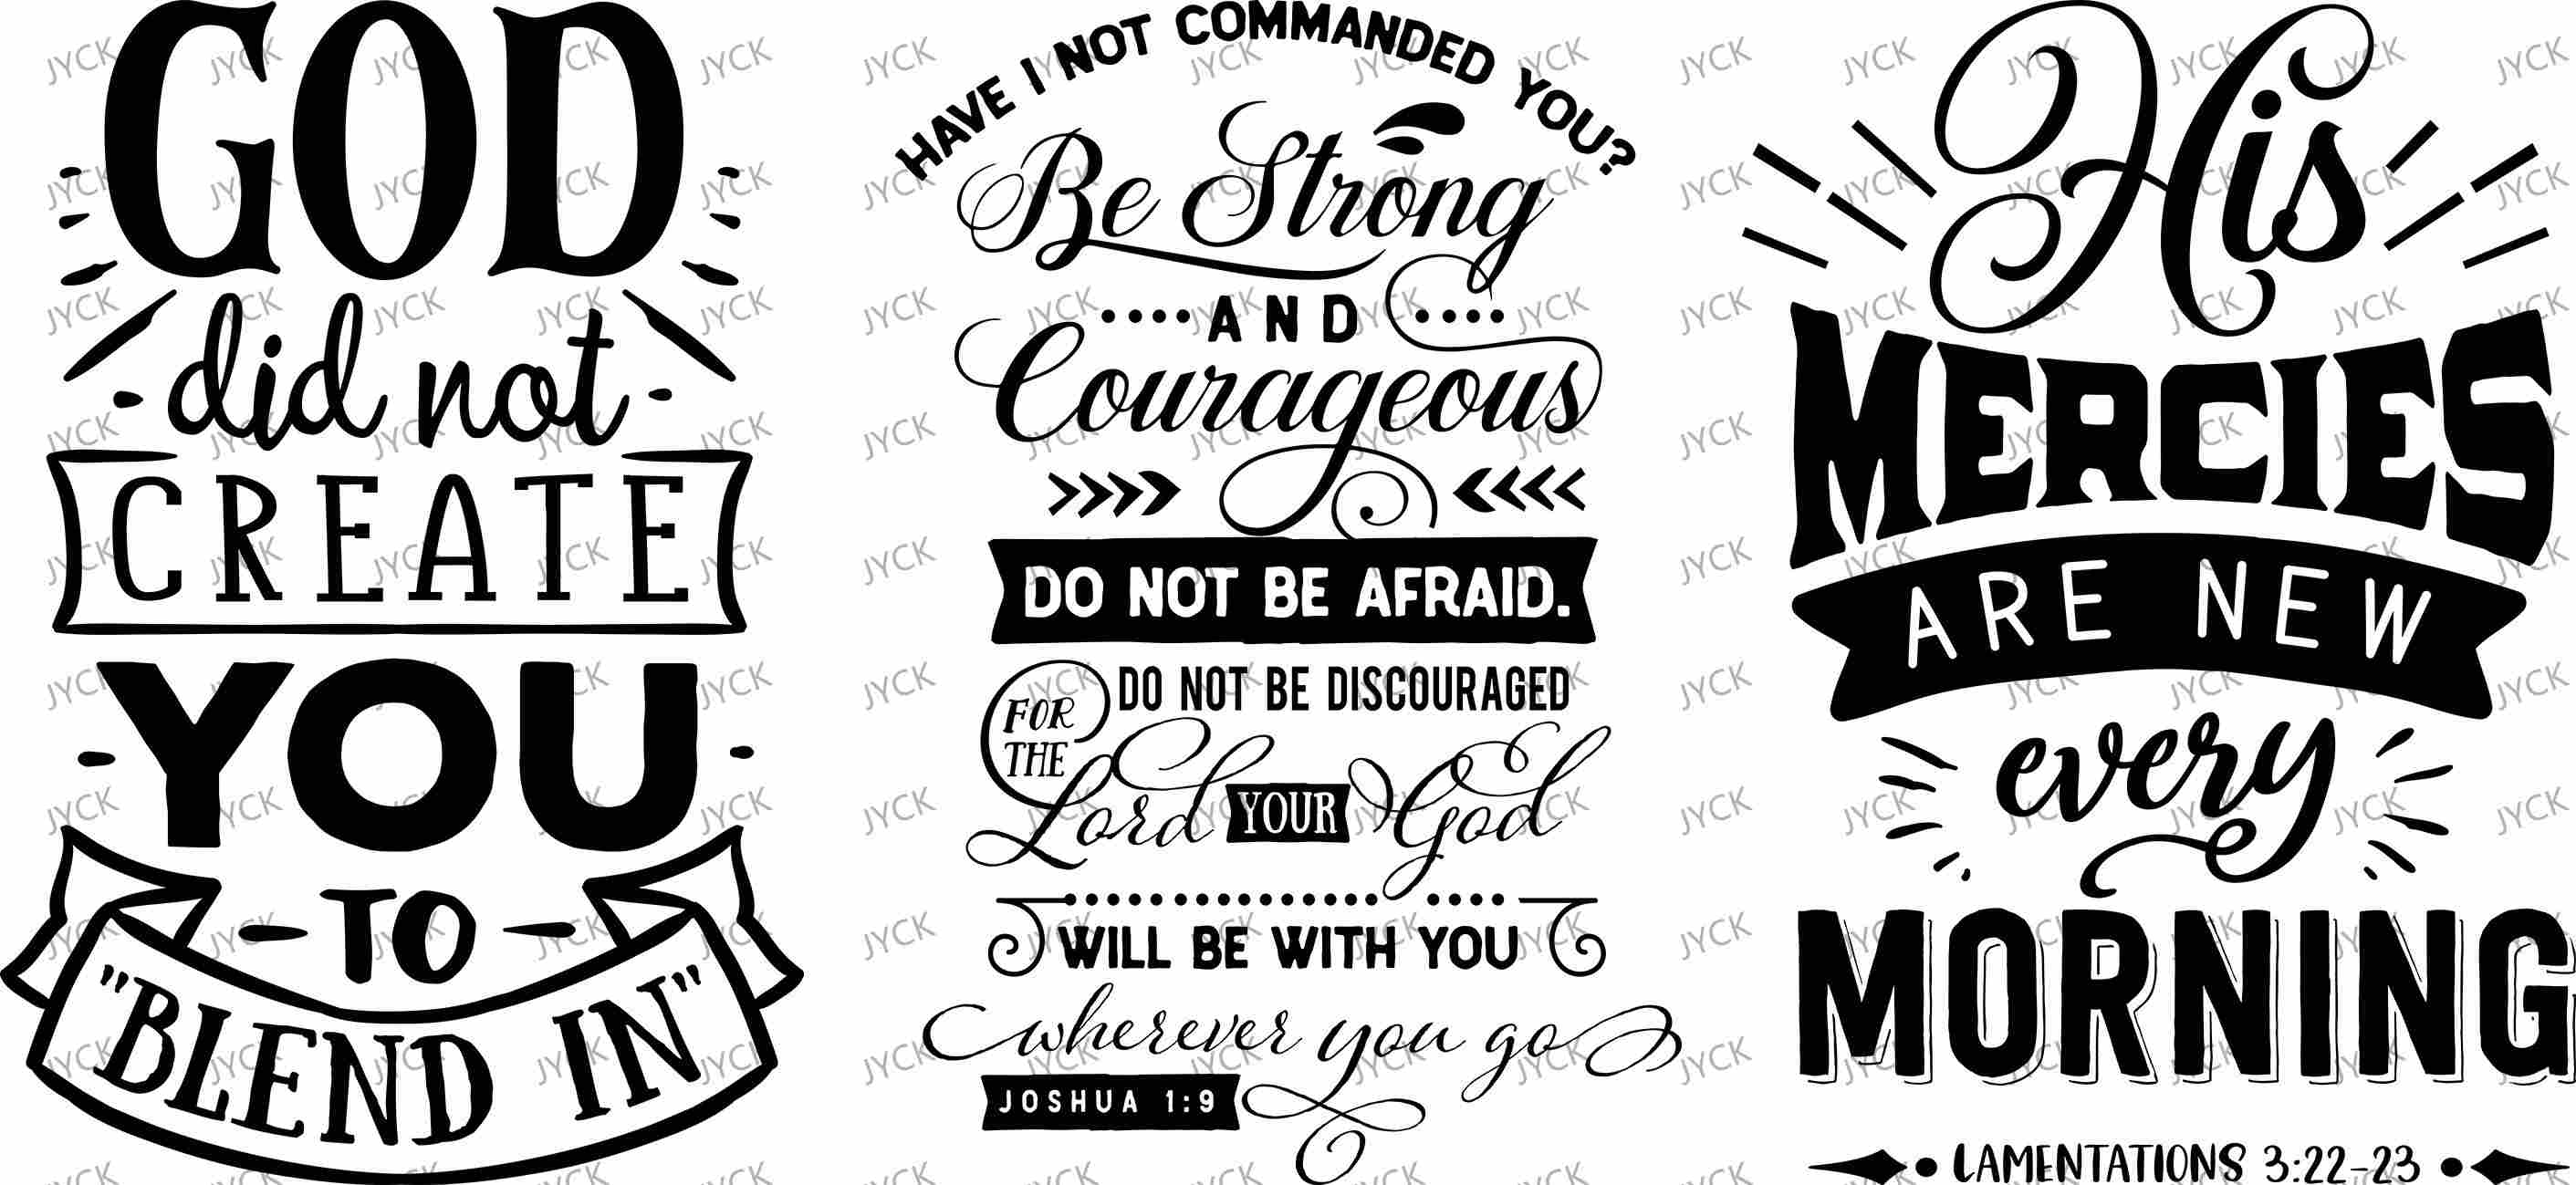 GOD
did not
CREATE
YOU
TO
"BLEND IN"
HAVE I NOT COMMANDED YOU?
Be Strong
AND
Courageous
DO NOT BE AFRAID.
DO NOT BE DISCOURAGED
FOR
THE
Lord YOUR God
WILL BE WITH YOU
wherever you go
JOSHUA 1:9
His
MERCIES
ARE NEW
every
MORNING
LAMENTATIONS 3:22-23
JYCK